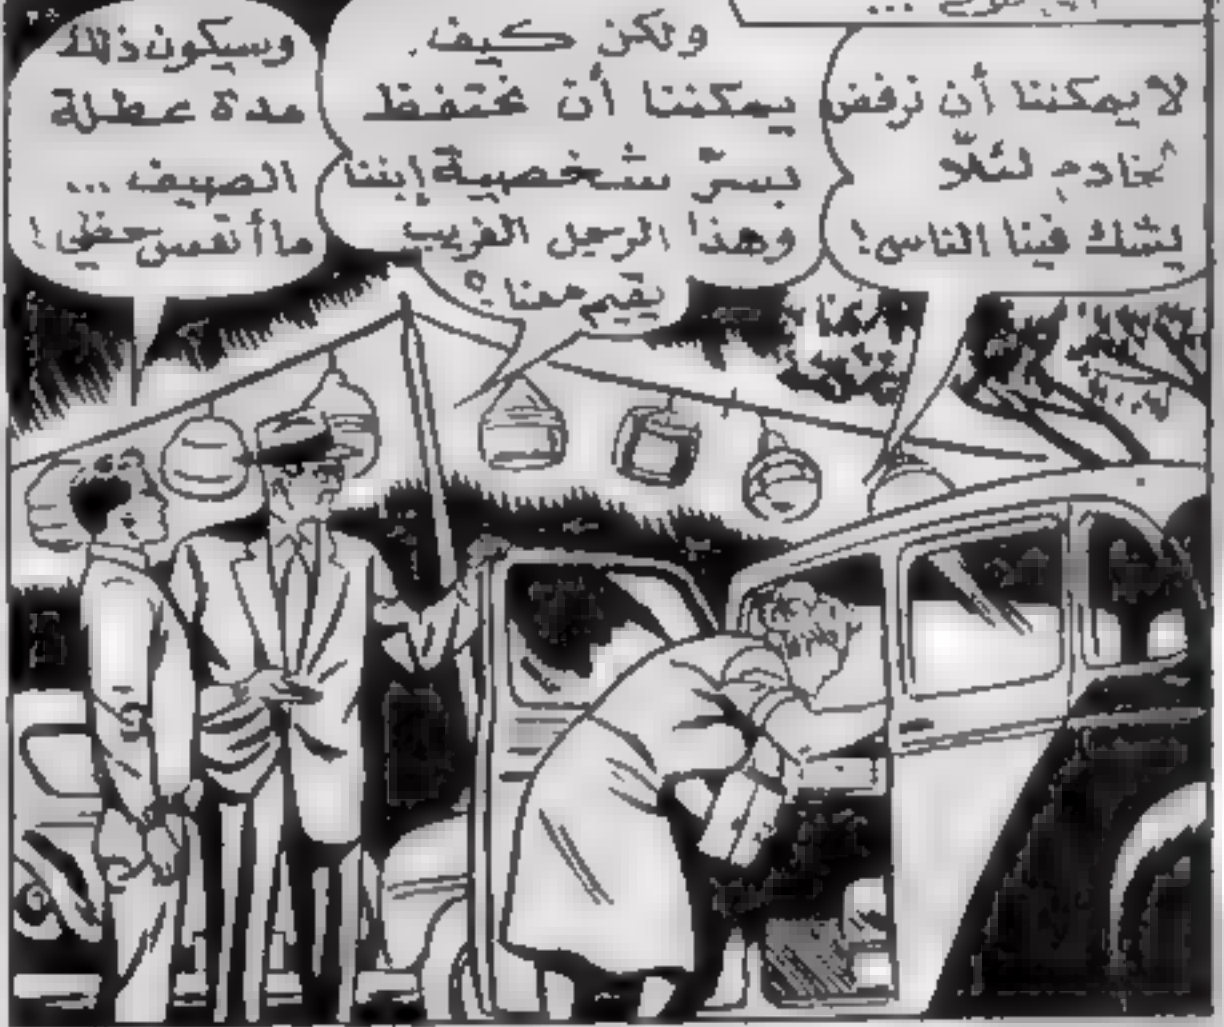 لا يمكننا أن نرفض
لئلّا
يشك فينا الناس!
ولكن كيف
يمكننا أن نحتفظ
بسرّ شخصية إبننا
وهذا الرجل الغريب
يقيم معنا؟
وسيكون ذلك
مدة عطلة
الصيف ...
ما أتعس حظي!